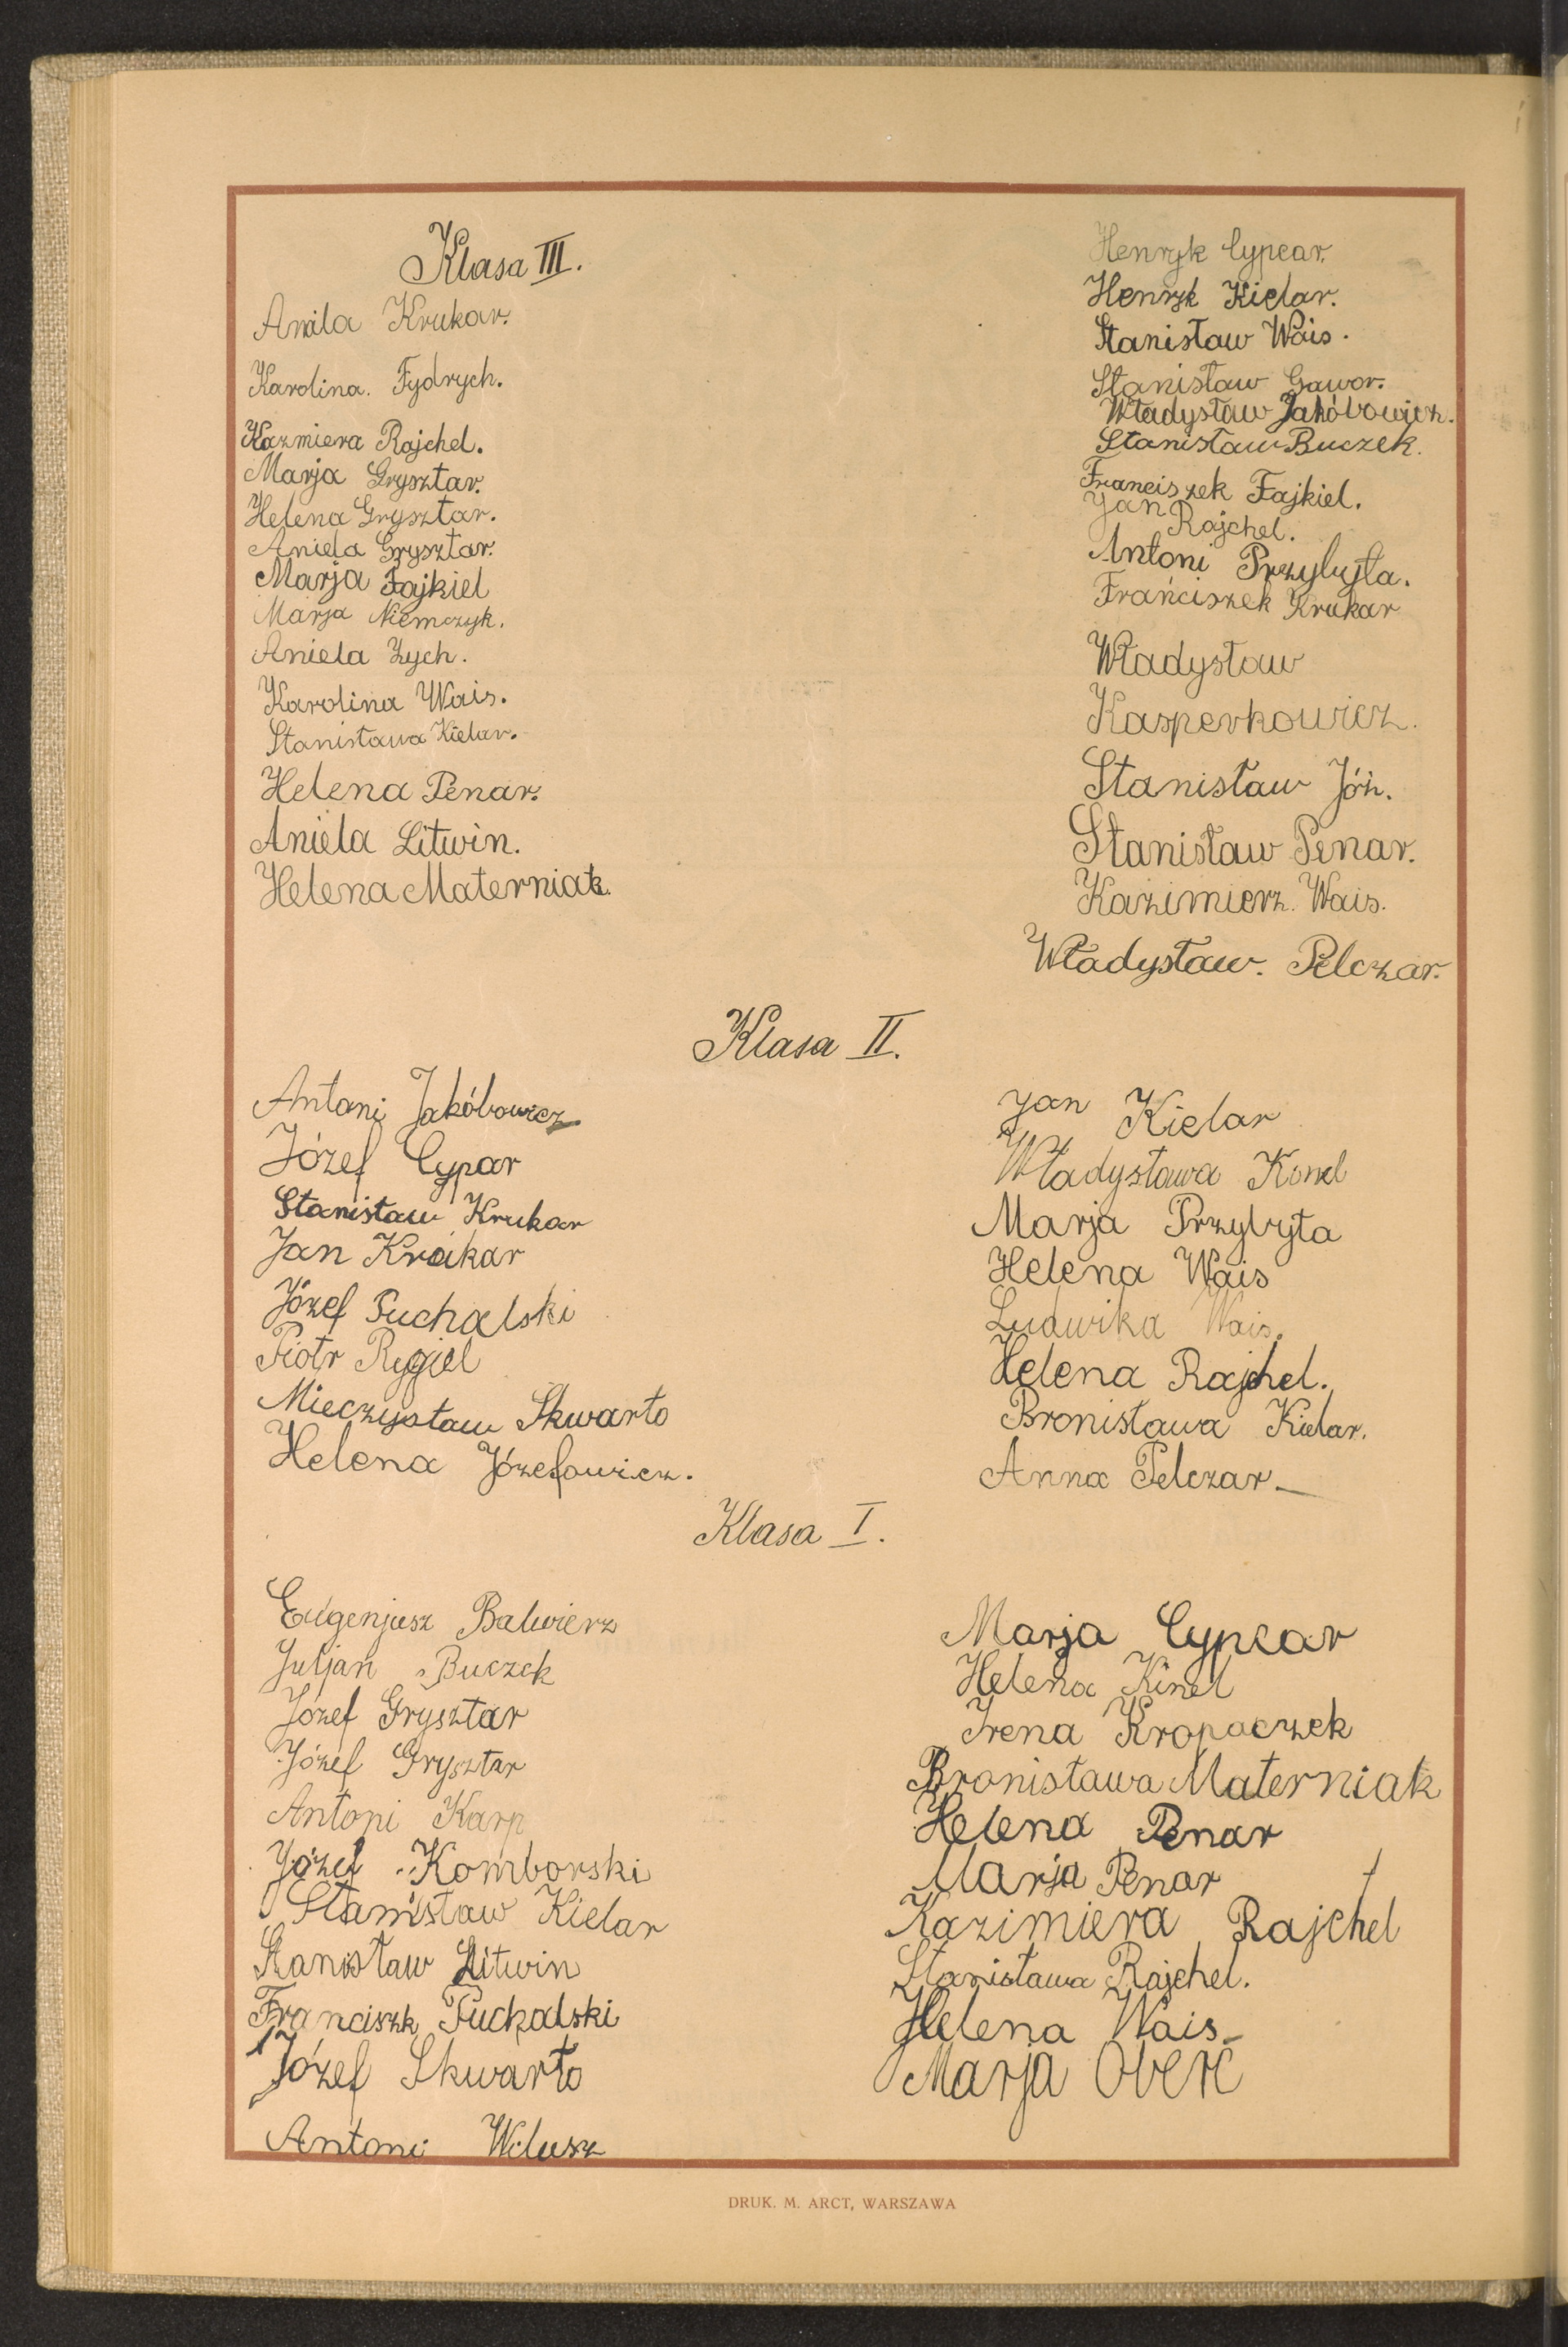 Klasa III.
Aniela Krukar.
Karolina. Fydrych.
Kazmiera Rajchel.
Marja Grysztar.
Helena Grysztar.
Aniela Grysztar.
Marja Fajkiel
Marja Niemczyk.
Aniela Zych.
Karolina Wais.
Stanisława Kielar.
Helena Penar.
Aniela Litwin.
Helena Materniak.
Henryk Cypcar.
Henryk Kielar.
Stanisław Wais.
Stanisław Gawor.
Władysław Jakóbowicz.
Stanisław Buczek.
Franciszek Fajkiel.
Jan Rajchel.
Antoni Przybyła.
Frańciszek Krukar
Władysław
Kasperkowicz.
Stanisław Jóź.
Stanisław Penar.
Kazimierz. Wais.
Władysław. Pelczar.
Klasa II.
Antoni Jakóbowicz
Józef Cypar
Stanisław Krukar
Jan Krukar
Józef Puchalski
Piotr Rygiel
Mieczysław Skwarło
Helena Józefowicz.
Jan Kielar
Władysława Konel
Marja Przybyła
Helena Wais
Ludwika Wais.
Helena Rajchel.
Bronisława Kielar.
Anna Pelczar.
Klasa I.
Eugenjusz Balwierz
Juljan Buczek
Józef Grysztar
Józef Grysztar
Antoni Karp
Józef Komborski
Stanisław Kielar
Stanisław Litwin
Franciszk Puchalski
Józef Skwarło
Antoni Wilusz
Marja Cypcar
Helena Kinel
Irena Kropaczek
Bronisława Materniak
Helena Penar
Marja Penar
Kazimiera Rajchel
Stanisława Rajchel.
Helena Wais
Marja Oberc
DRUK. M. ARCT, WARSZAWA